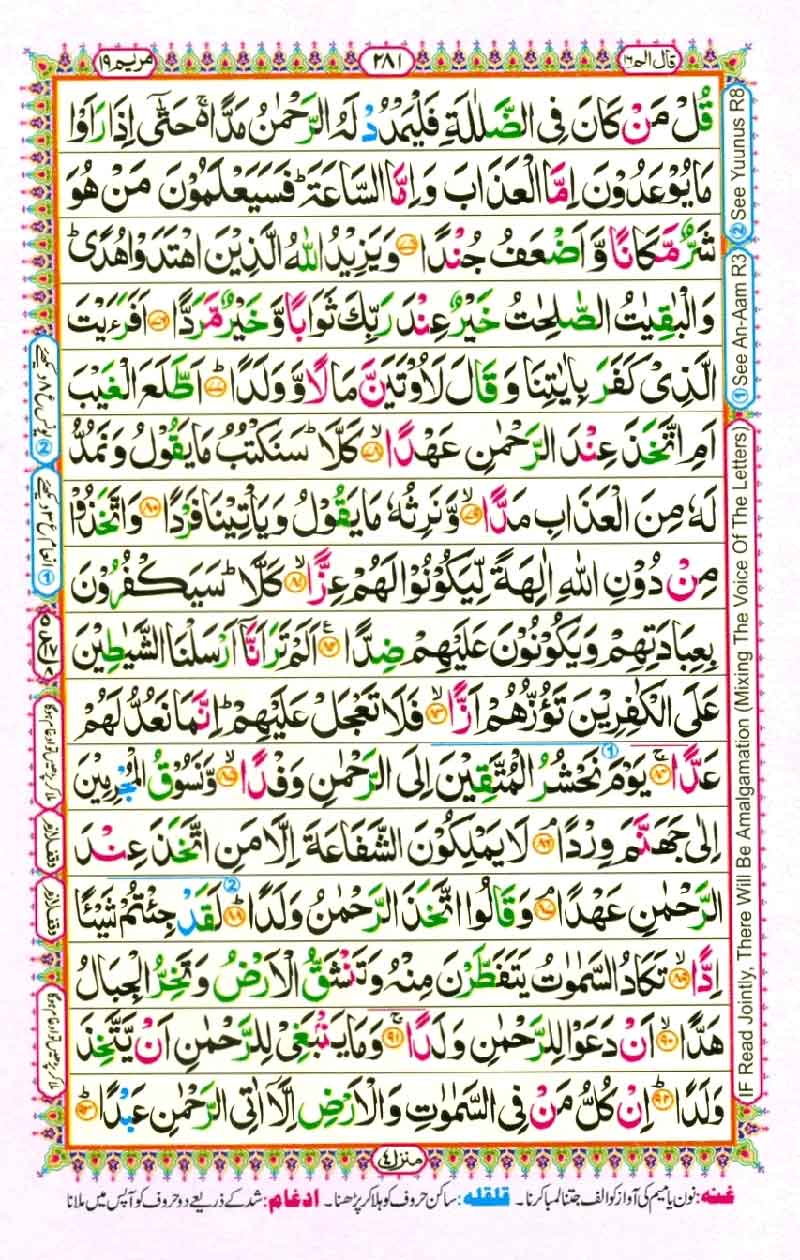 قال الم ١٦
٢٨١
مريم ١٩
قُلْ مَنْ كَانَ فِى الضَّلٰلَةِ فَلْيَمْدُدْ لَهُ الرَّحْمٰنُ مَدًّا ۚ۬ حَتّٰٓى اِذَا رَاَوْا
مَا يُوْعَدُوْنَ اِمَّا الْعَذَابَ وَ اِمَّا السَّاعَةَ ؕ فَسَيَعْلَمُوْنَ مَنْ هُوَ
شَرٌّ مَّكَانًا وَّ اَضْعَفُ جُنْدًا ۝۷۵ وَ يَزِيْدُ اللّٰهُ الَّذِيْنَ اهْتَدَوْا هُدًى ؕ
وَ الْبٰقِيٰتُ الصّٰلِحٰتُ خَيْرٌ عِنْدَ رَبِّكَ ثَوَابًا وَّ خَيْرٌ مَّرَدًّا ۝۷۶ اَفَرَءَيْتَ
الَّذِىْ كَفَرَ بِاٰيٰتِنَا وَ قَالَ لَاُوْتَيَنَّ مَالًا وَّ وَلَدًا ؕ۝۷۷ اَطَّلَعَ الْغَيْبَ
اَمِ اتَّخَذَ عِنْدَ الرَّحْمٰنِ عَهْدًا ۙ۝۷۸ كَلَّا ؕ سَنَكْتُبُ مَا يَقُوْلُ وَ نَمُدُّ
لَهٗ مِنَ الْعَذَابِ مَدًّا ۙ۝۷۹ وَّ نَرِثُهٗ مَا يَقُوْلُ وَ يَاْتِيْنَا فَرْدًا ۝۸۰ وَ اتَّخَذُوْا
مِنْ دُوْنِ اللّٰهِ اٰلِهَةً لِّيَكُوْنُوْا لَهُمْ عِزًّا ۙ۝۸۱ كَلَّا ؕ سَيَكْفُرُوْنَ
بِعِبَادَتِهِمْ وَ يَكُوْنُوْنَ عَلَيْهِمْ ضِدًّا ۠۝۸۲ اَلَمْ تَرَ اَنَّاۤ اَرْسَلْنَا الشَّيٰطِيْنَ
عَلَى الْكٰفِرِيْنَ تَؤُزُّهُمْ اَزًّا ۙ۝۸۳ فَلَا تَعْجَلْ عَلَيْهِمْ ؕ اِنَّمَا نَعُدُّ لَهُمْ
عَدًّا ۚ۝۸۴ يَوْمَ نَحْشُرُ الْمُتَّقِيْنَ اِلَى الرَّحْمٰنِ وَفْدًا ۙ۝۸۵ وَّ نَسُوْقُ الْمُجْرِمِيْنَ
اِلٰى جَهَنَّمَ وِرْدًا ۘ۝۸۶ لَا يَمْلِكُوْنَ الشَّفَاعَةَ اِلَّا مَنِ اتَّخَذَ عِنْدَ
الرَّحْمٰنِ عَهْدًا ۘ۝۸۷ وَ قَالُوا اتَّخَذَ الرَّحْمٰنُ وَلَدًا ؕ۝۸۸ لَقَدْ جِئْتُمْ شَيْـًٔا
اِدًّا ۙ۝۸۹ تَكَادُ السَّمٰوٰتُ يَتَفَطَّرْنَ مِنْهُ وَ تَنْشَقُّ الْاَرْضُ وَ تَخِرُّ الْجِبَالُ
هَدًّا ۙ۝۹۰ اَنْ دَعَوْا لِلرَّحْمٰنِ وَلَدًا ۚ۝۹۱ وَ مَا يَنْۢبَغِىْ لِلرَّحْمٰنِ اَنْ يَّتَّخِذَ
وَلَدًا ؕ۝۹۲ اِنْ كُلُّ مَنْ فِى السَّمٰوٰتِ وَ الْاَرْضِ اِلَّاۤ اٰتِى الرَّحْمٰنِ عَبْدًا ؕ۝۹۳
منزل ٤
② See Yuunus R8
① See An-Aam R3
IF Read Jointly, There Will Be Amalgamation (Mixing The Voice Of The Letters)
وقف لازم
وقف لازم
غنه: نون یا میم کی آواز کو الف جتنا لمبا کرنا۔ قلقله: ساکن حروف کو ہلا کر پڑھنا۔ ادغام: شد کے ذریعے دو حروف کو آپس میں ملانا